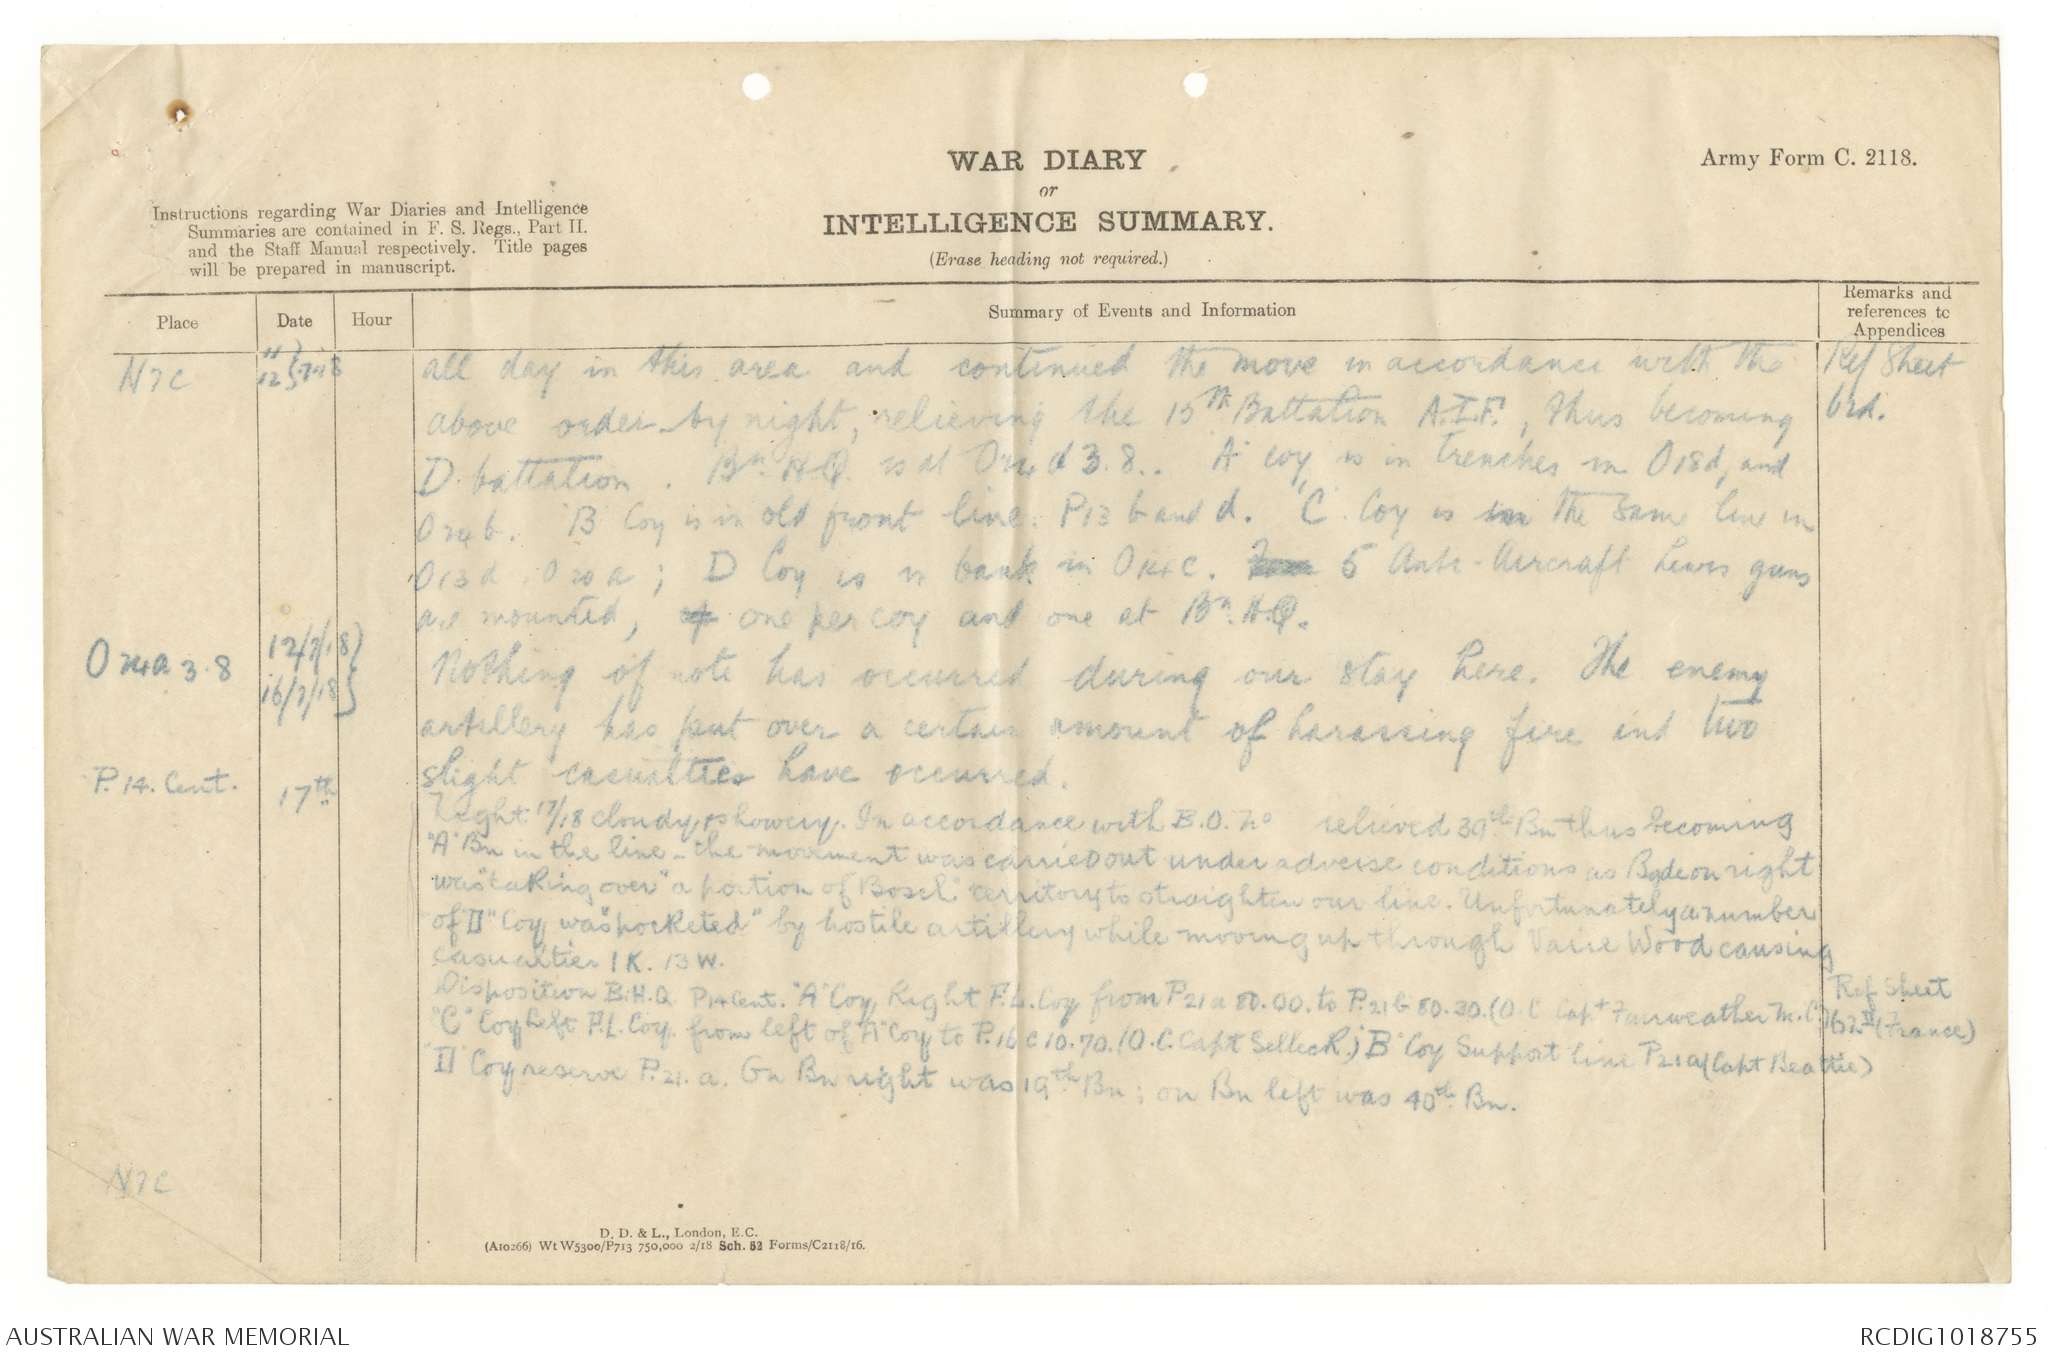 WAR DIARY
or
INTELLIGENCE SUMMARY.
(Erase heading not required.)
Army Form C. 2118.
Instructions regarding War Diaries and Intelligence
Summaries are contained in F. S. Regs., Part II.
and the Staff Manual respectively. Title pages
will be prepared in manuscript.
Place
Date
Hour
Summary of Events and Information
Remarks and
references to
Appendices
N7c
11
12 } 7.18
all day in this area and continued the move in accordance with the
Ref Sheet
62d.
above order by night, relieving the 15th Battalion A.I.F., thus becoming
D battalion. Bn. H.Q. is at O24d 3.8.. A coy is in trenches in O18d, and
O24b. B Coy is in old front line. P13 b and d. "C. Coy is in the same line in
O13d, O20a; D Coy is in bank in O14c. 5 Anti-Aircraft Lewis guns
are mounted, one per coy and one at Bn. H.Q.
O24a 3.8
12/7/18 }
16/7/18 }
Nothing of note has occurred during our stay here. The enemy
artillery has put over a certain amount of harassing fire and two
slight casualties have occurred.
P. 14. Cent.
17th
Night 17/18 cloudy, showery. In accordance with B.O. No relieved 39th Bn thus becoming
"A" Bn in the line - the movement was carried out under adverse conditions as Bgde on right
was "taking over" a portion of Bosch territory to straighten our line. Unfortunately a number
of "D" Coy was "pocketed" by hostile artillery while moving up through Vaire Wood causing
casualties 1 K. 13 W.
Disposition B.H.Q P14 Cent. "A" Coy, Right F.L. Coy from P21a 80.00. to P.21b 80.30. (O.C Capt Fairweather M.C.)
Ref Sheet
62d (France)
"C" Coy Left F.L. Coy. from left of "A" Coy to P.16c 10.70. (O.C. Capt Selleck); B" Coy Support line P21a (Capt Beattie)
"D" Coy reserve P.21.a. On Bn right was 19th Bn; on Bn left was 40th Bn.
N7c
D. D. & L., London, E.C.
(A10266) Wt W5300/P713 750,000 2/18 Sch. 52 Forms/C2118/16.
AUSTRALIAN WAR MEMORIAL
RCDIG1018755